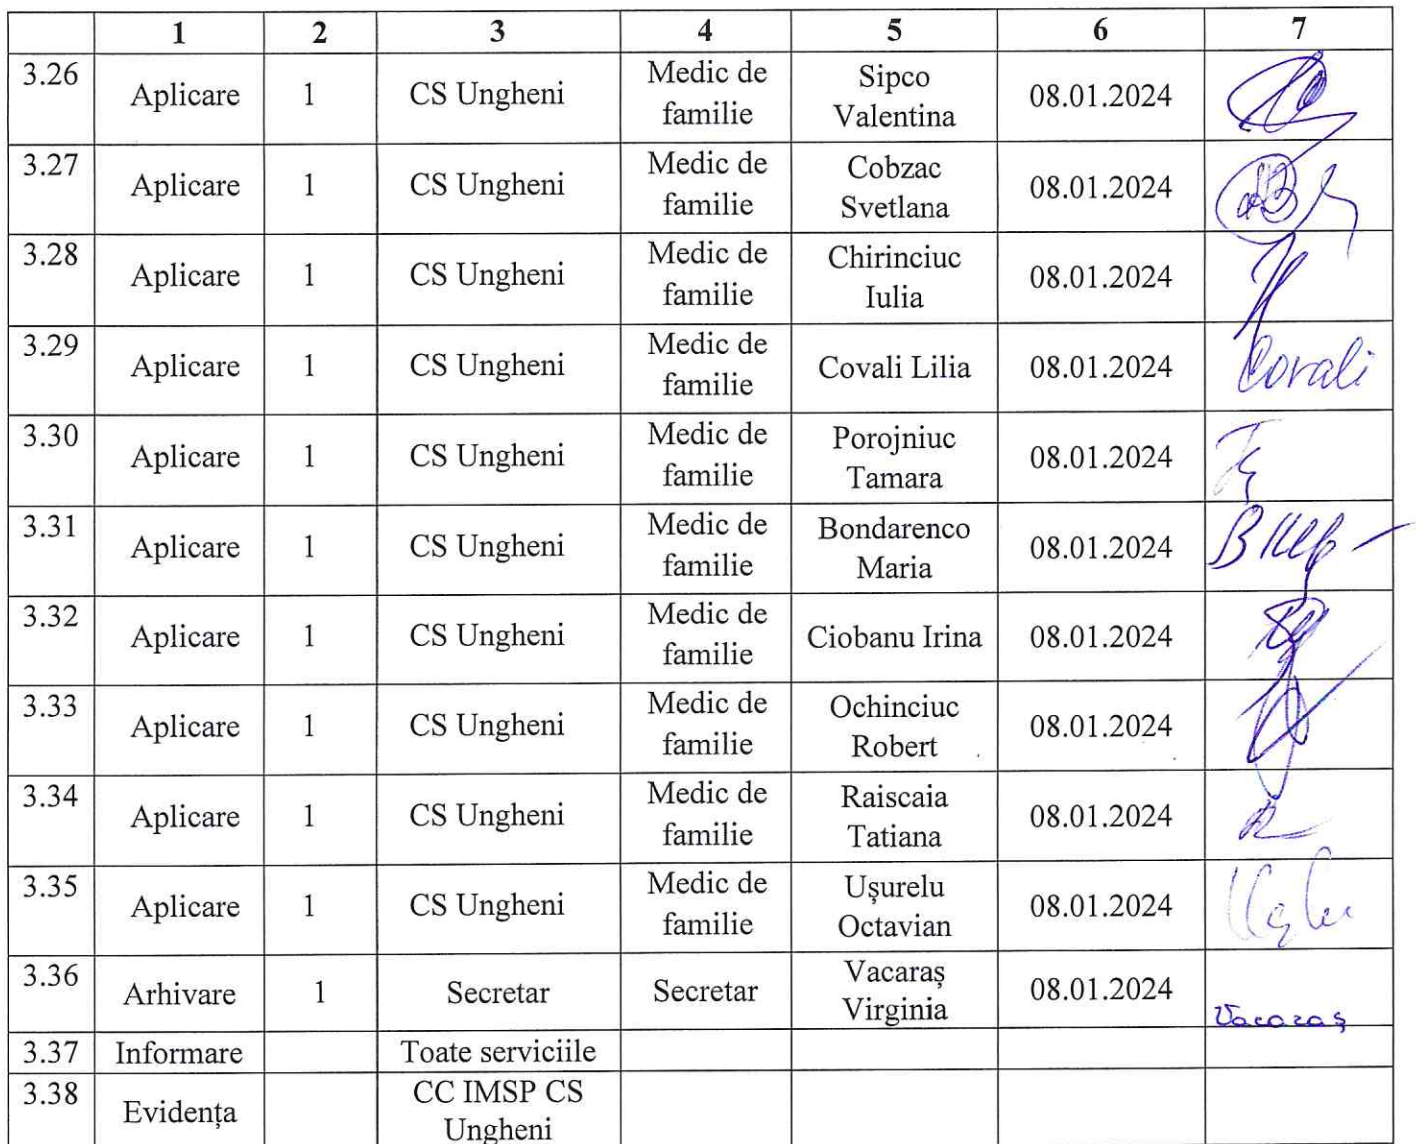 1 2 3 4 5 6 7
3.26 Aplicare 1 CS Ungheni Medic de familie Sipco Valentina 08.01.2024
3.27 Aplicare 1 CS Ungheni Medic de familie Cobzac Svetlana 08.01.2024
3.28 Aplicare 1 CS Ungheni Medic de familie Chirinciuc Iulia 08.01.2024
3.29 Aplicare 1 CS Ungheni Medic de familie Covali Lilia 08.01.2024 Covali
3.30 Aplicare 1 CS Ungheni Medic de familie Porojniuc Tamara 08.01.2024
3.31 Aplicare 1 CS Ungheni Medic de familie Bondarenco Maria 08.01.2024
3.32 Aplicare 1 CS Ungheni Medic de familie Ciobanu Irina 08.01.2024
3.33 Aplicare 1 CS Ungheni Medic de familie Ochinciuc Robert 08.01.2024
3.34 Aplicare 1 CS Ungheni Medic de familie Raiscaia Tatiana 08.01.2024
3.35 Aplicare 1 CS Ungheni Medic de familie Ușurelu Octavian 08.01.2024
3.36 Arhivare 1 Secretar Secretar Vacaraș Virginia 08.01.2024 Vacaraș
3.37 Informare Toate serviciile
3.38 Evidența CC IMSP CS Ungheni